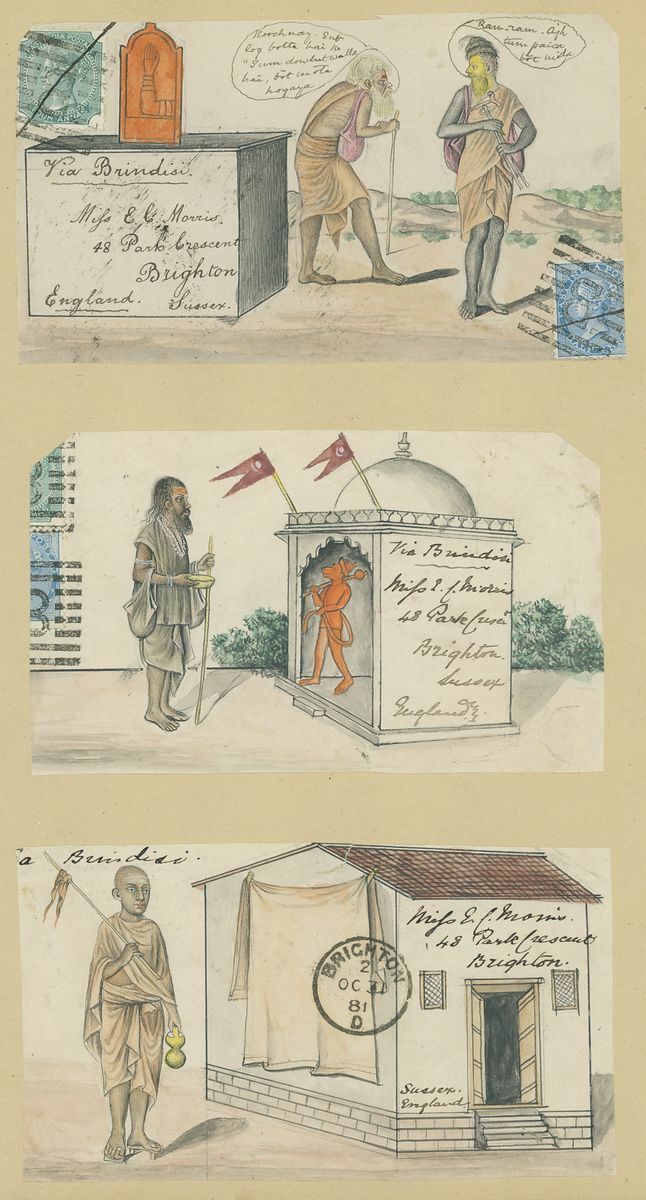 S INDIA
SIX ANNAS
Kooch nay. Sub
log bolta hai ke
"Tum dowlut walla
hai, bōt mōta
hogaya
Ram-ram. Ajh
tum paisa
bōt mila
Via Brindisi.
Miss E. C. Morris.
48 Park Crescent
Brighton
England.
Sussex.
Via Brindisi
Miss E. C. Morris
48 Park Cresct
Brighton
Sussex
England
a Brindisi.
Miss E. C. Morris.
48 Park Crescent
Brighton.
BRIGHTON
2
OC 31
81
D
Sussex.
England